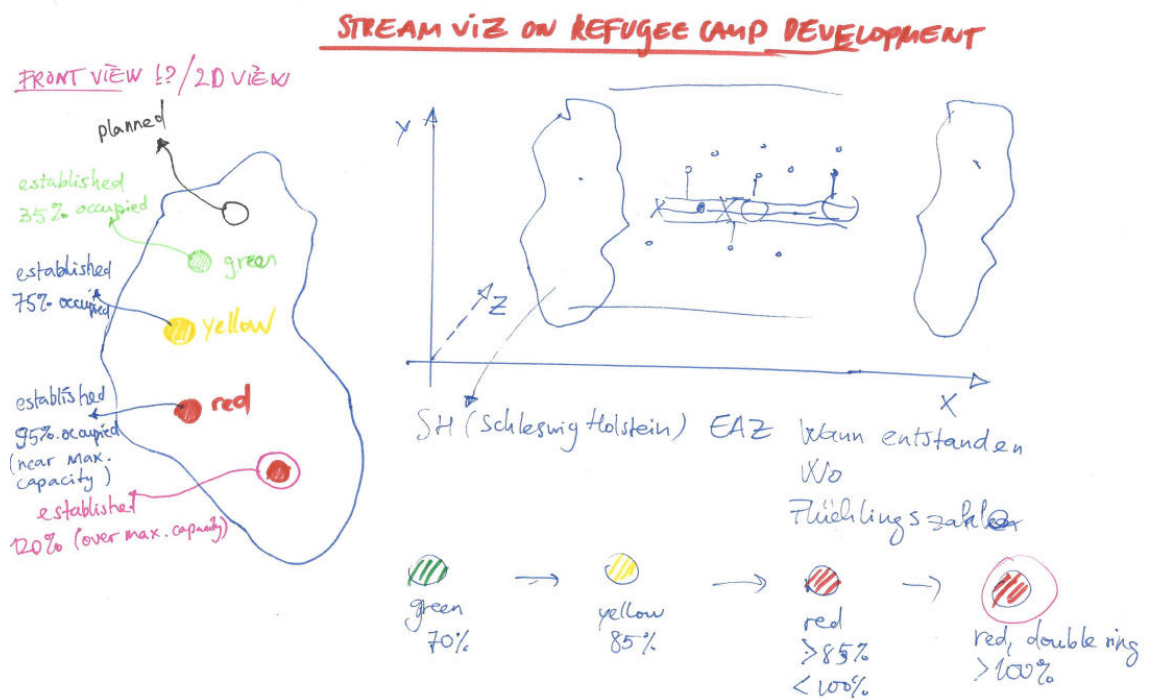 STREAM VIZ ON REFUGEE CAMP DEVELOPMENT
FRONT VIEW !?/2D VIEW
planned
established
35% occupied
green
established
75% occupied
yellow
established
95% occupied
(near max.
capacity)
red
established
120% (over max. capacity)
Y
Z
X
SH (Schleswig Holstein) EAZ Wann entstanden
Wo
Flüchlingszahlen
green
70%
yellow
85%
red
>85%
<100%
red, double ring
>100%